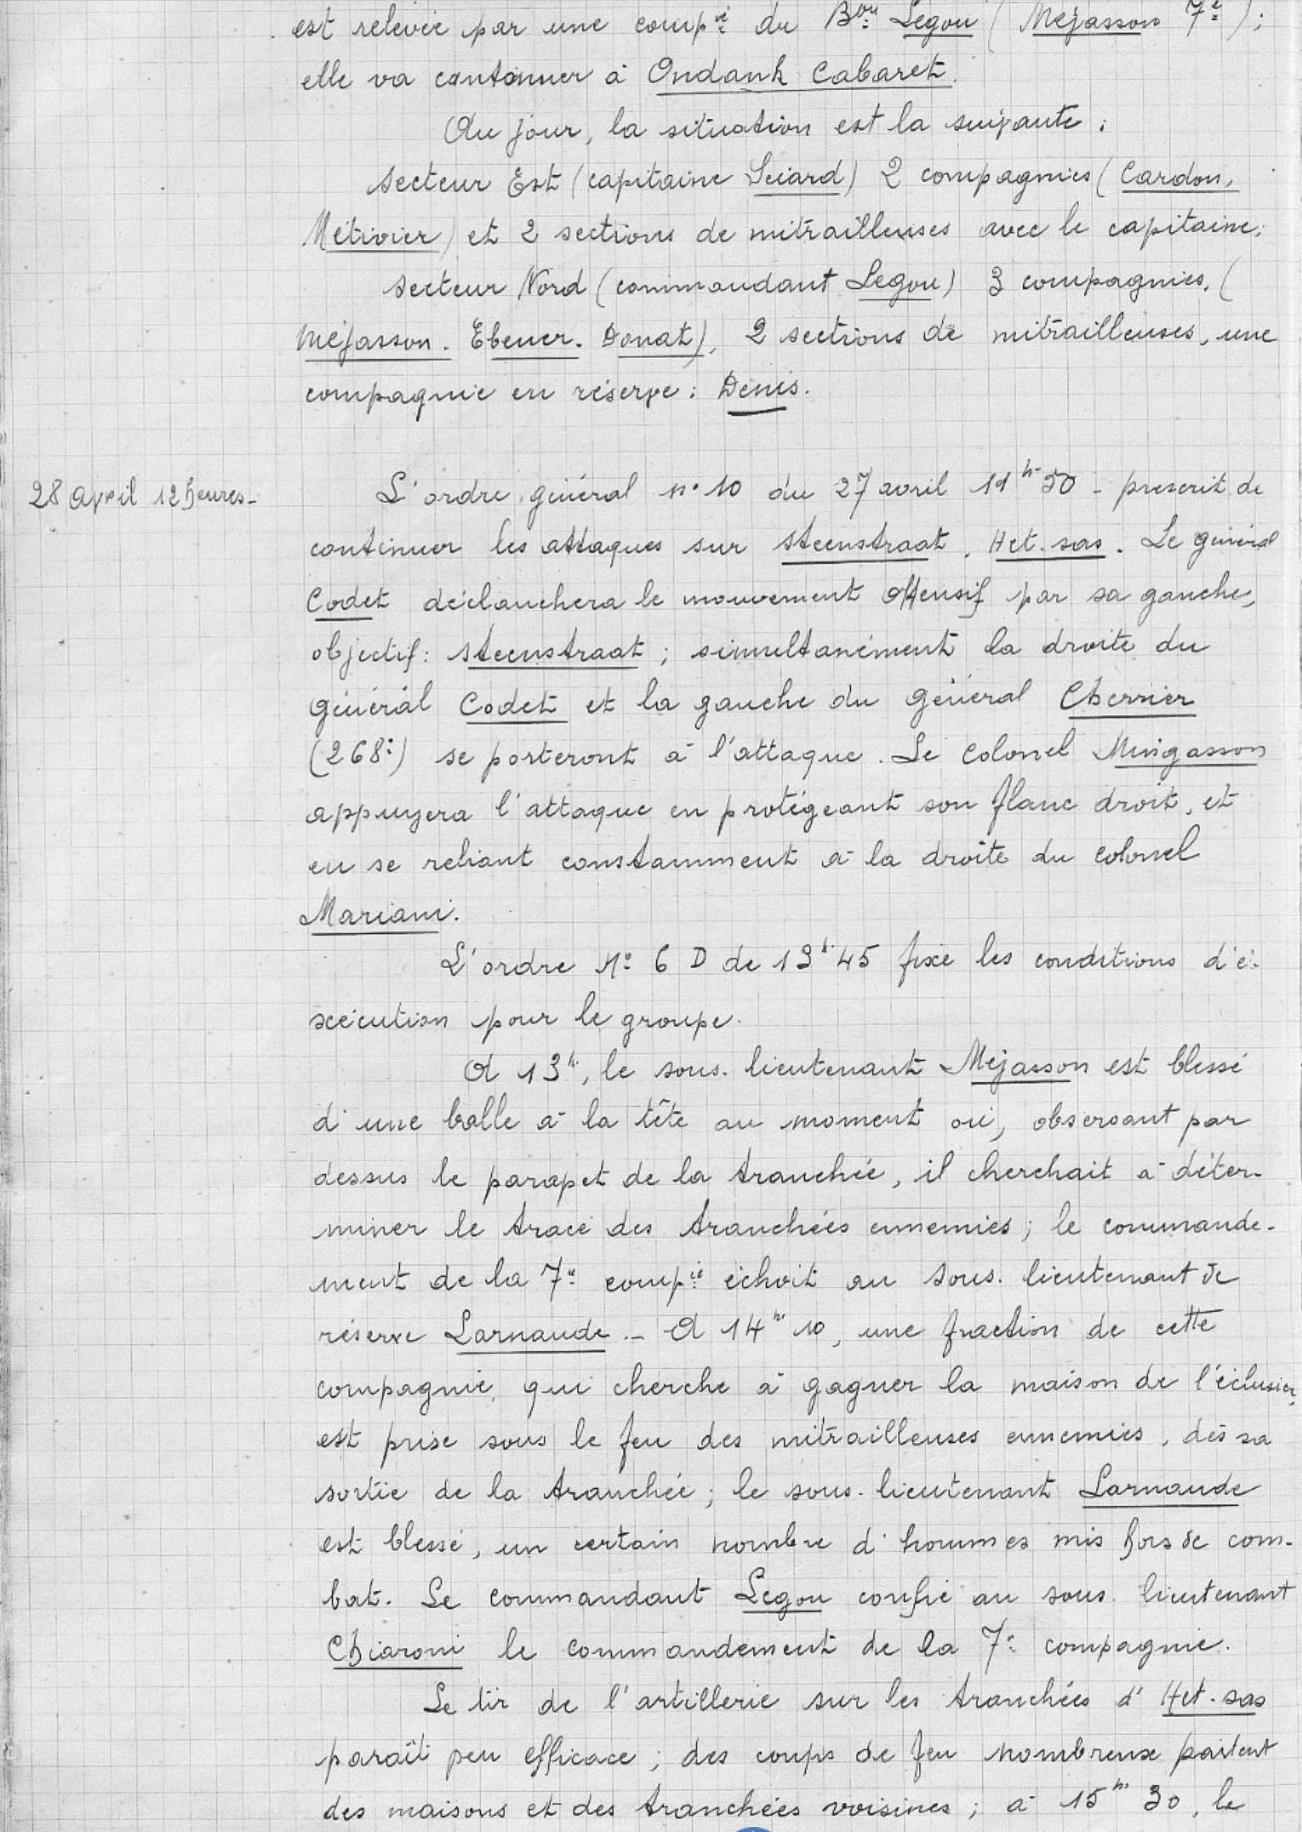 est relevée par une comp^ie du B^on Legou (Mejasson 7e);
elle va cantonner à Ondank Cabaret.
Au jour, la situation est la suivante :
secteur Est (capitaine Sciard) 2 compagnies (Cardon,
Métivier) et 2 sections de mitrailleuses avec le capitaine;
secteur Nord (commandant Legou) 3 compagnies, (
Méjasson. Ebener. Donat), 2 sections de mitrailleuses, une
compagnie en réserve : Denis.
28 avril 12 heures - L'ordre général n° 10 du 27 avril 11h 50 - prescrit de
continuer les attaques sur Steenstraat. Het-sas. Le général
Codet déclanchera le mouvement offensif par sa gauche,
objectif : Steenstraat ; simultanément la droite du
général Codet et la gauche du général Cherrier
(268e) se porteront à l'attaque. Le colonel Mingasson
appuyera l'attaque en protégeant son flanc droit, et
en se reliant constamment à la droite du colonel
Mariani.
L'ordre N° 6 D de 13h 45 fixe les conditions d'e-
xécution pour le groupe.
A 13h, le sous-lieutenant Mejasson est blessé
d'une balle à la tête au moment où, observant par
dessus le parapet de la tranchée, il cherchait à déter-
miner le tracé des tranchées ennemies; le commande-
ment de la 7e comp^ie échoit au sous-lieutenant de
réserve Larnaude - A 14h 10, une fraction de cette
compagnie, qui cherche à gagner la maison de l'éclusier,
est prise sous le feu des mitrailleuses ennemies, dès sa
sortie de la tranchée; le sous-lieutenant Larnaude
est blessé, un certain nombre d'hommes mis hors de com-
bat. Le commandant Legou confie au sous-lieutenant
Chiaroni le commandement de la 7e compagnie.
Le tir de l'artillerie sur les tranchées d'Het-sas
paraît peu efficace; des coups de feu nombreux partent
des maisons et des tranchées voisines; à 15h 30, le